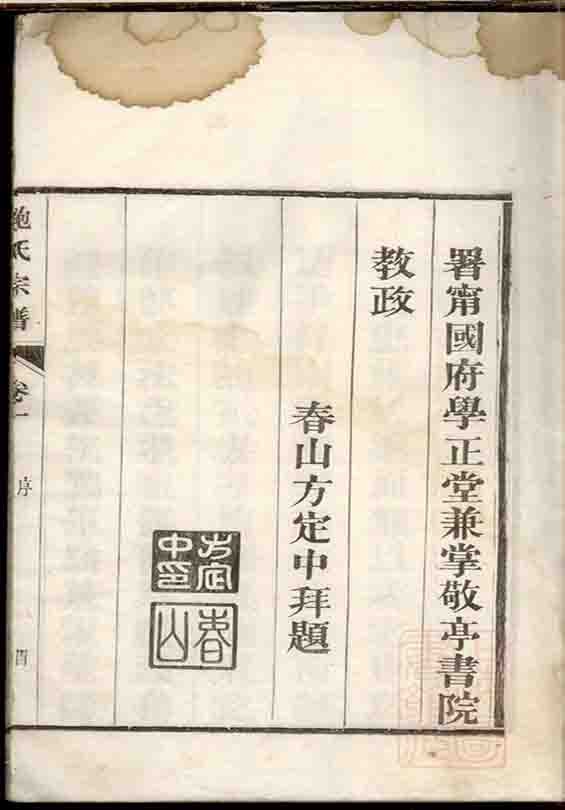 署甯國府學正堂兼掌敬亭書院
教政
春山方定中拜題
方定中印
春山
鮑氏宗譜
卷一
序